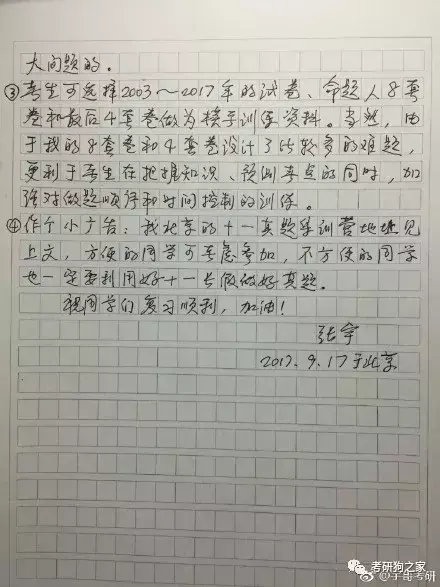 大问题的。
③考生可选择2003～2017年的试卷、命题人8套
卷和最后4套卷做为模拟训练资料。当然，由
于我的8套卷和4套卷设计了比较多的难题，
更利于考生在把握知识、预测考点的同时，加
强对做题顺序和时间控制的训练。
④作个小广告：我北京的十一真题集训营地址见
上文，方便的同学可考虑参加，不方便的同学
也一定要利用好十一长假做好真题。
祝同学们复习顺利，加油！
张宇
2017.9.17于北京
考研狗之家
@宇哥考研